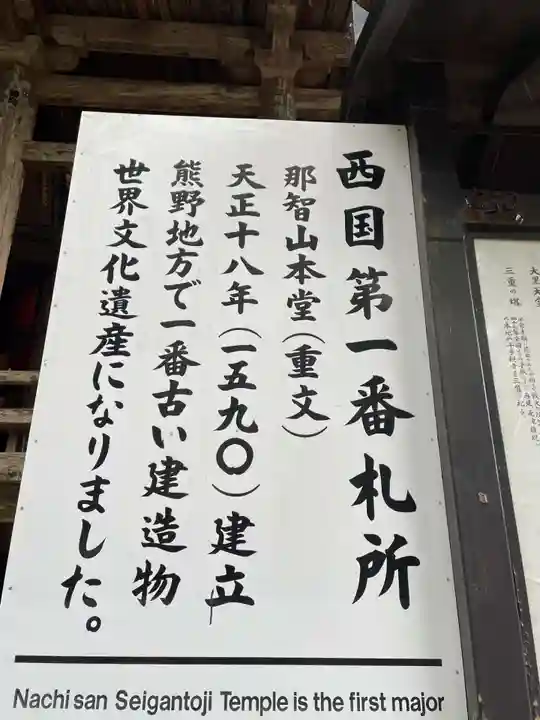 西国第一番札所
那智山本堂(重文)
天正十八年(一五九〇)建立
熊野地方で一番古い建造物
世界文化遺産になりました。
Nachisan Seigantoji Temple is the first major
大黒天堂
三重の塔